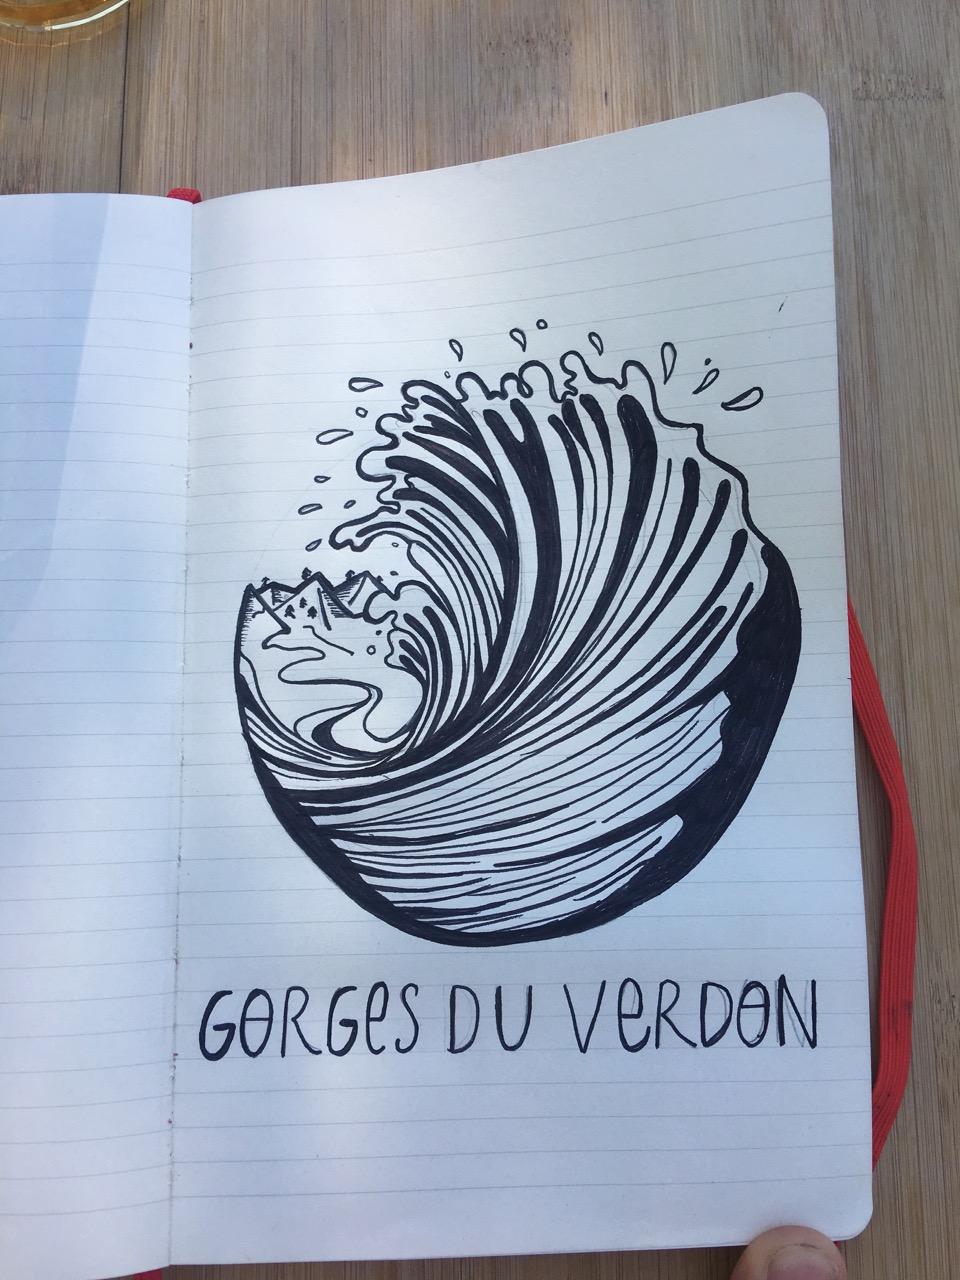 GORGeS DU VeRDON